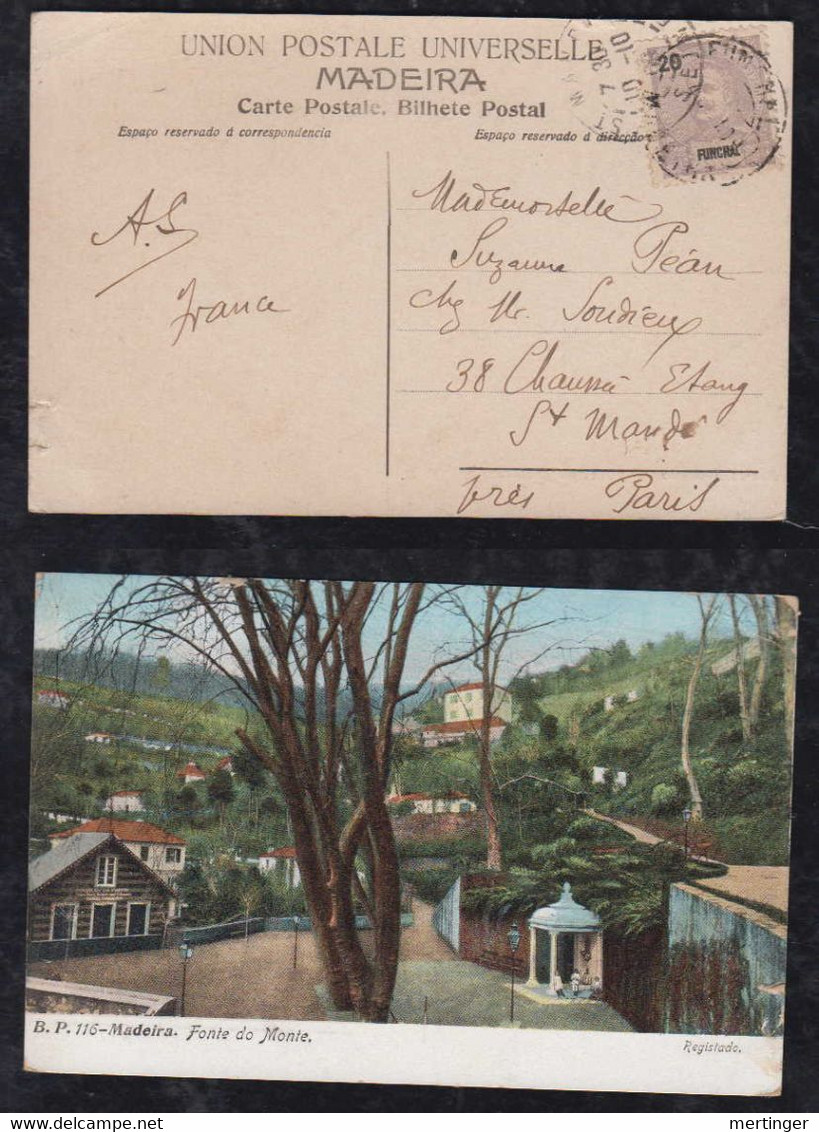 UNION POSTALE UNIVERSELLE
MADEIRA
Carte Postale. Bilhete Postal
Espaço reservado á correspondencia
Espaço reservado á direcção
20
FUNCHAL
A.S
France
Mademoiselle
Suzanne Péan
chez Mr. Soudieux
38 Chaussée Etang
St Mandé
près Paris
B. P. 116-Madeira. Fonte do Monte.
Registado.
mertinger
www.mertinger.com